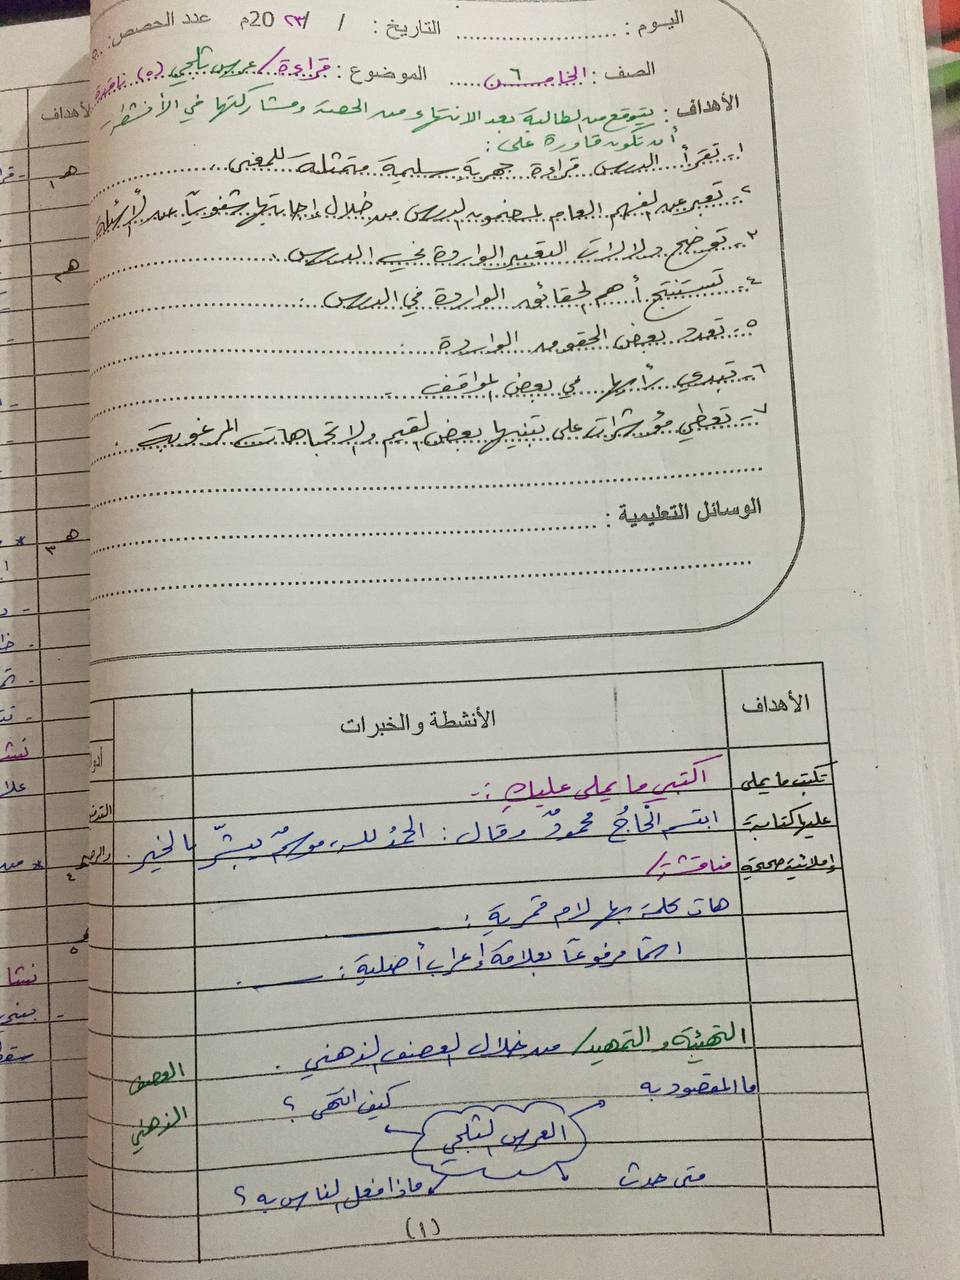 اليوم : ........................ التاريخ : / / ٢٣ 20م عدد الحصص:
الصف : الخامس ٦ الموضوع : قراءة / عرس ثلجي (٥)
الأهداف : يتوقع من الطالبة بعد الانتهاء من الحصة ومشاركتها في الأنشطة
أن تكون قادرة على :
١- تقرأ الدرس قراءة جهرية سليمة متمثلة للمعنى .
٢- تعبر عن الفهم العام لمضمون الدرس من خلال إجابتها شفويًا عن أسئلة
٣- توضح دلالات التعبير الواردة في الدرس .
٤- تستنتج أهم الحقائق الواردة في الدرس .
٥- تعدد بعض الحقوق الواردة .
٦- تبدي رأيها في بعض المواقف .
٧- تعطي مؤشرات على تبنيها بعض القيم والاتجاهات المرغوبة .
الوسائل التعليمية :
الأهداف الأنشطة والخبرات
تكتب ما يملى اكتبي ما يملى عليكِ :-
عليها كتابة ابتسم الحاجُ محمودٌ وقال : الحمدُ لله، موسمٌ يبشّر بالخير .
إملائية صحيحة مناقشة /
هات كلمة بها لام قمرية : ______
اسمًا مرفوعًا بعلامة إعراب أصلية : ______ .
التهيئة والتمهيد / من خلال العصف الذهني .
العصف
الذهني
ما المقصود به كيف انتهى ؟
العرس الثلجي
متى حدث ماذا فعل الناس به ؟
(١)
الأهداف
هـ ١
هـ ٣